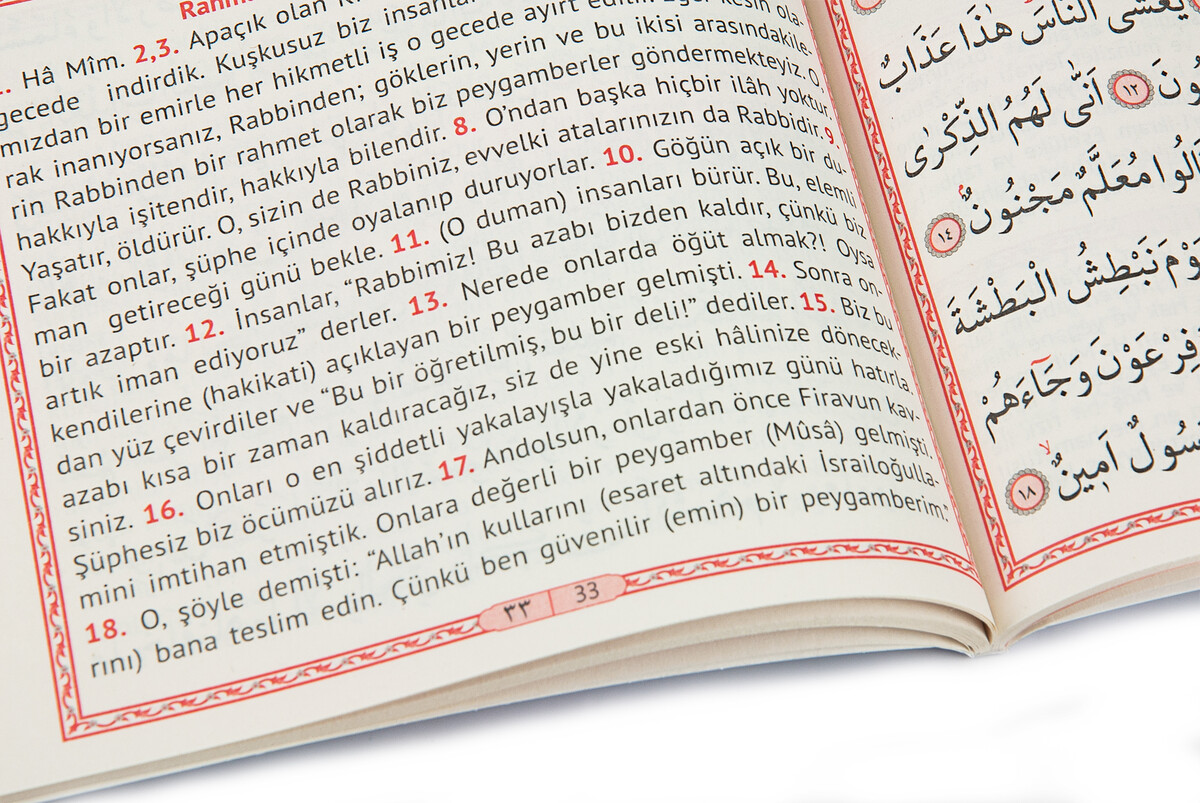 Hâ Mîm. 2,3. Apaçık olan
gecede indirdik. Kuşkusuz biz insanla
mızdan bir emirle her hikmetli iş o gecede ayırt
rak inanıyorsanız, Rabbinden; göklerin, yerin ve bu ikisi arasındakile-
rin Rabbinden bir rahmet olarak biz peygamberler göndermekteyiz. O,
hakkıyla işitendir, hakkıyla bilendir. 8. O’ndan başka hiçbir ilâh yoktur.
Yaşatır, öldürür. O, sizin de Rabbiniz, evvelki atalarınızın da Rabbidir. 9.
Fakat onlar, şüphe içinde oyalanıp duruyorlar. 10. Göğün açık bir du-
man getireceği günü bekle. 11. (O duman) insanları bürür. Bu, elemli
bir azaptır. 12. İnsanlar, “Rabbimiz! Bu azabı bizden kaldır, çünkü biz
artık iman ediyoruz” derler. 13. Nerede onlarda öğüt almak?! Oysa
kendilerine (hakikati) açıklayan bir peygamber gelmişti. 14. Sonra on-
dan yüz çevirdiler ve “Bu bir öğretilmiş, bu bir deli!” dediler. 15. Biz bu
azabı kısa bir zaman kaldıracağız, siz de yine eski hâlinize dönecek-
siniz. 16. Onları o en şiddetli yakalayışla yakaladığımız günü hatırla.
Şüphesiz biz öcümüzü alırız. 17. Andolsun, onlardan önce Firavun kav-
mini imtihan etmiştik. Onlara değerli bir peygamber (Mûsâ) gelmişti.
18. O, şöyle demişti: “Allah’ın kullarını (esaret altındaki İsrailoğulla-
rını) bana teslim edin. Çünkü ben güvenilir (emin) bir peygamberim.”
٣٣ | 33
يَغْشَى النَّاسَ هٰذَا عَذَابٌ
١٢ اَنّٰى لَهُمُ الذِّكْرٰى
مُعَلَّمٌ مَجْنُونٌ ١٤
نَبْطِشُ الْبَطْشَةَ
فِرْعَوْنَ وَجَاءَهُمْ
اَمٖينٌ ١٨